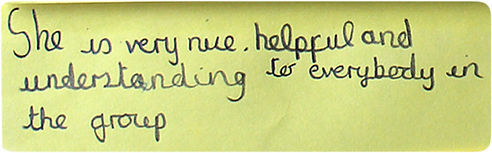 She is very nice. helpful and
understanding to everybody in
the group